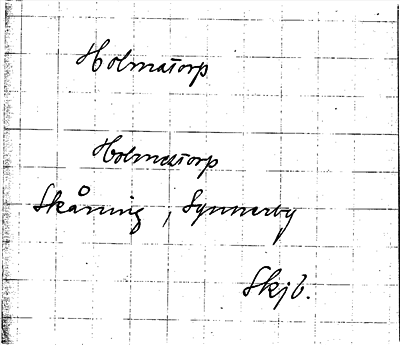 Holmatorp
Holmatorp
Skåning, Synnerby
Skjb.